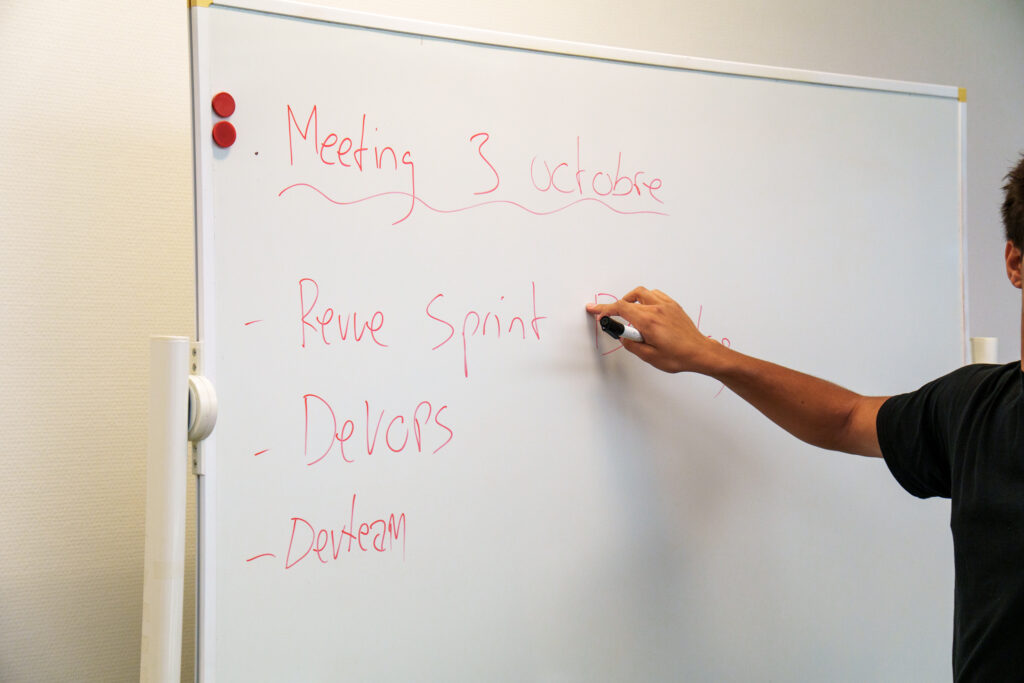 Meeting 3 octobre
- Revue Sprint
- DevOps
- Devteam